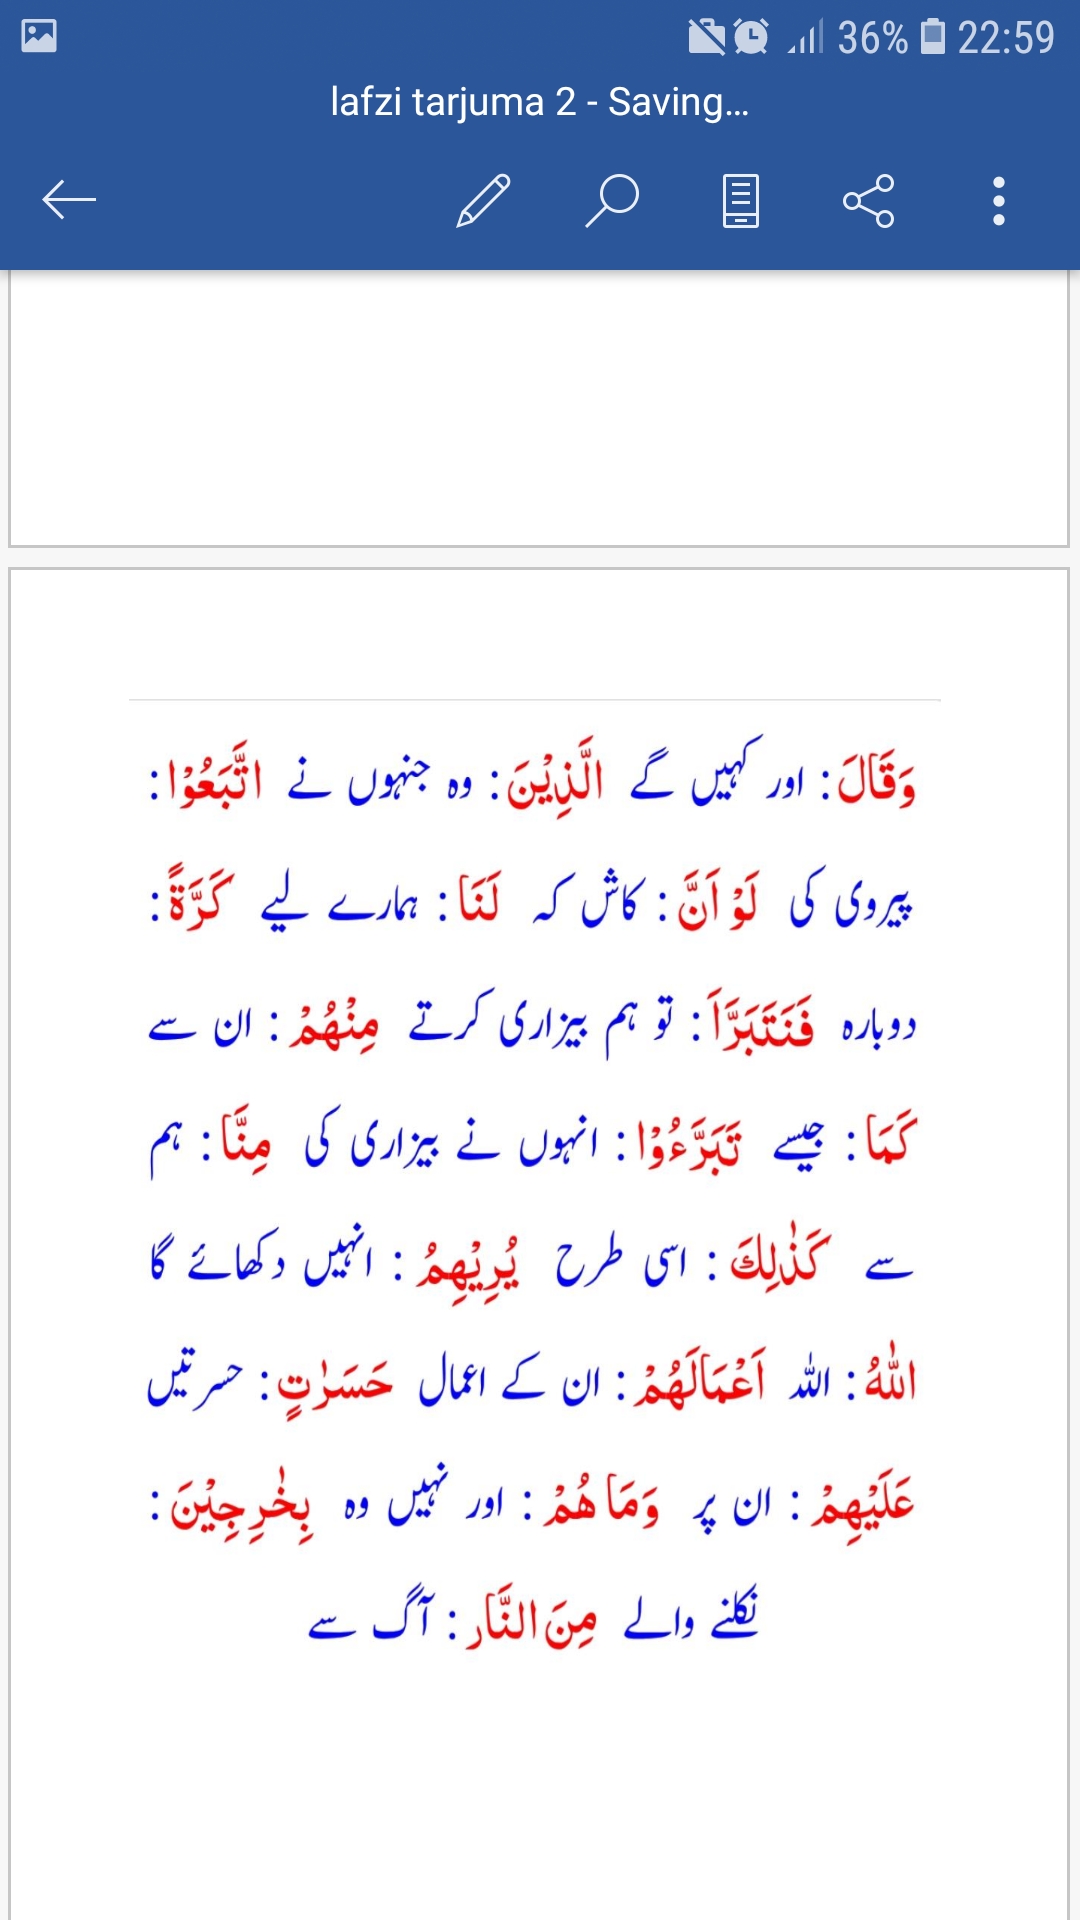 36% 22:59
lafzi tarjuma 2 - Saving...
وَقَالَ : اور کہیں گے الَّذِيْنَ : وہ جنہوں نے اتَّبَعُوْا :
پیروی کی لَوْ اَنَّ : کاش کہ لَنَا : ہمارے لیے كَرَّةً :
دوبارہ فَنَتَبَرَّاَ : تو ہم بیزاری کرتے مِنْهُمْ : ان سے
كَمَا : جیسے تَبَرَّءُوْا : انہوں نے بیزاری کی مِنَّا : ہم
سے كَذٰلِكَ : اسی طرح يُرِيْهِمُ : انہیں دکھائے گا
اللّٰهُ : اللہ اَعْمَالَهُمْ : ان کے اعمال حَسَرٰتٍ : حسرتیں
عَلَيْهِمْ : ان پر وَمَا هُمْ : اور نہیں وہ بِخٰرِجِيْنَ :
نکلنے والے مِنَ النَّار : آگ سے